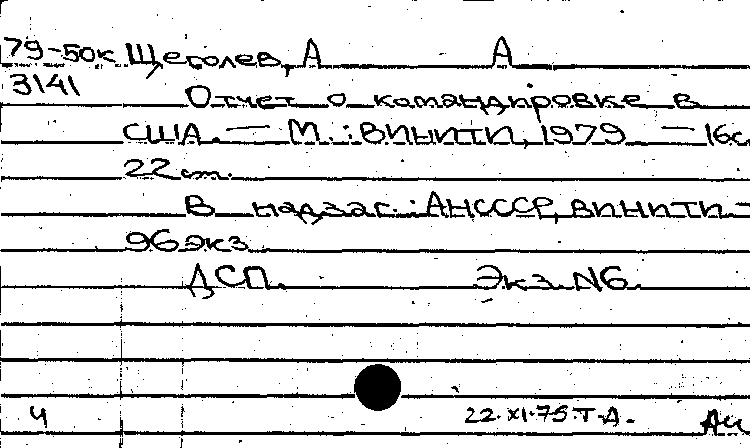 79-50к Щеголев, А А
3141
Отчет о командировке в
США. — М.: ВИНИТИ, 1979 — 16с
22 см.
В надзаг.: АН СССР, ВИНИТИ —
96 экз
ДСП. Экз. N6.
4 22.XI.75.Т-Д.